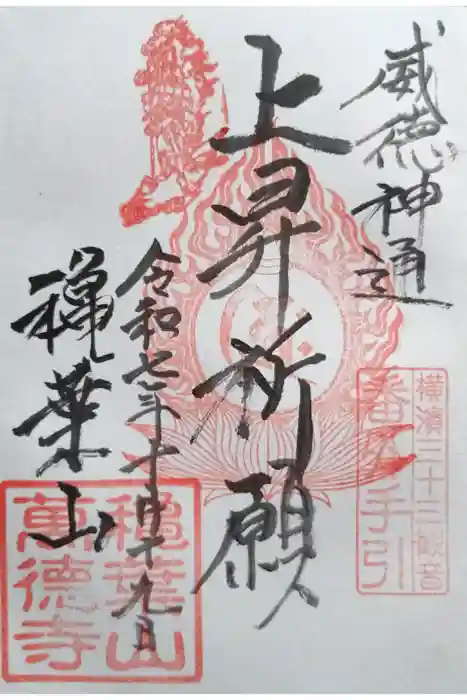 威徳神通
上昇祈願
令和七年十月十九日
穐葉山
横濱三十三観音
番外手引
穐葉山
萬徳寺